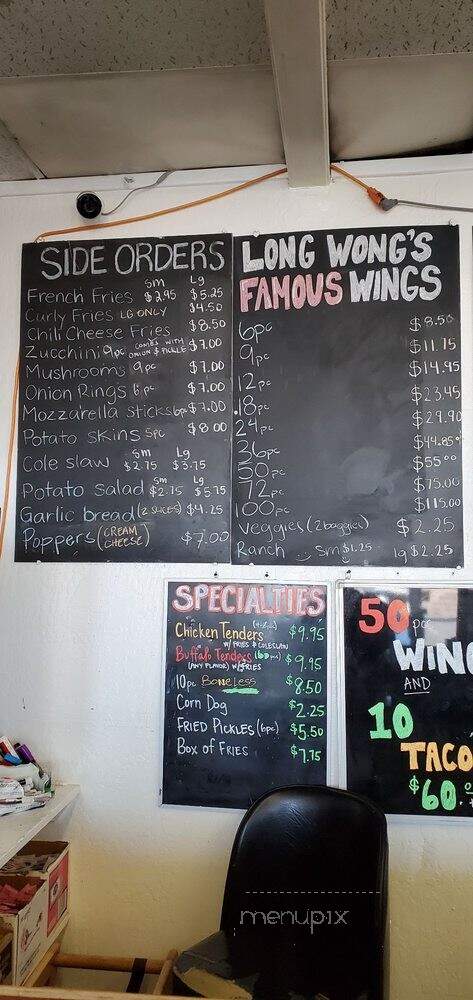 SIDE ORDERS
Sm Lg
French Fries $2.95 $5.25
Curly Fries LG ONLY $4.50
Chili Cheese Fries $8.50
Zucchini 9pc COMES WITH ONION & PICKLE $7.00
Mushrooms 9pc $7.00
Onion Rings 6pc $7.00
Mozzarella sticks 6pc $7.00
Potato skins 5pc $8.00
Sm Lg
Cole slaw $2.75 $5.75
Sm Lg
Potato salad $2.75 $5.75
Garlic bread (2 SLICES) $4.25
Poppers (CREAM CHEESE) $7.00
LONG WONG'S
FAMOUS WINGS
6pc $8.50
9pc $11.75
12pc $14.95
18pc $23.45
24pc $29.90
36pc $44.85
50pc $55.00
72pc $75.00
100pc $115.00
Veggies (2 baggies) $2.25
Ranch Sm $1.25 lg $2.25
SPECIALTIES
Chicken Tenders $9.95
W/ FRIES & COLESLAW
Buffalo Tenders $9.95
(ANY FLAVOR) W/ FRIES
10pc Boneless $8.50
Corn Dog $2.25
FRIED PICKLES (6pc) $5.50
Box of FRIES $7.75
50 pcs
WING
AND
10
TACO
$60.
menupix